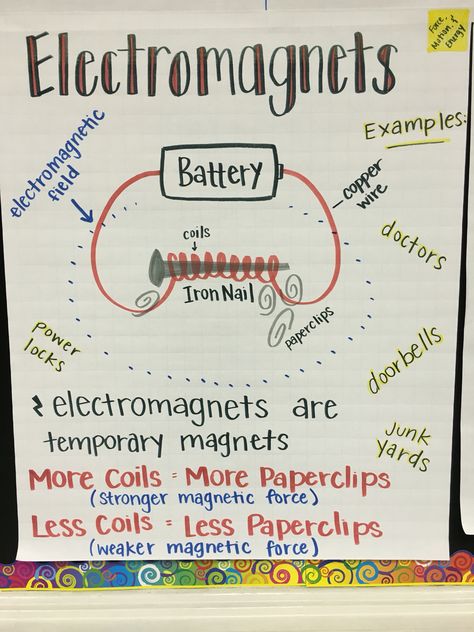 Force,
Motion, &
Energy
Electromagnets
Examples:
electromagnetic
field
Battery
copper
wire
coils
doctors
Iron Nail
paperclips
power
locks
doorbells
electromagnets are
temporary magnets
junk
yards
More Coils = More Paperclips
(stronger magnetic force)
Less Coils = Less Paperclips
(weaker magnetic force)